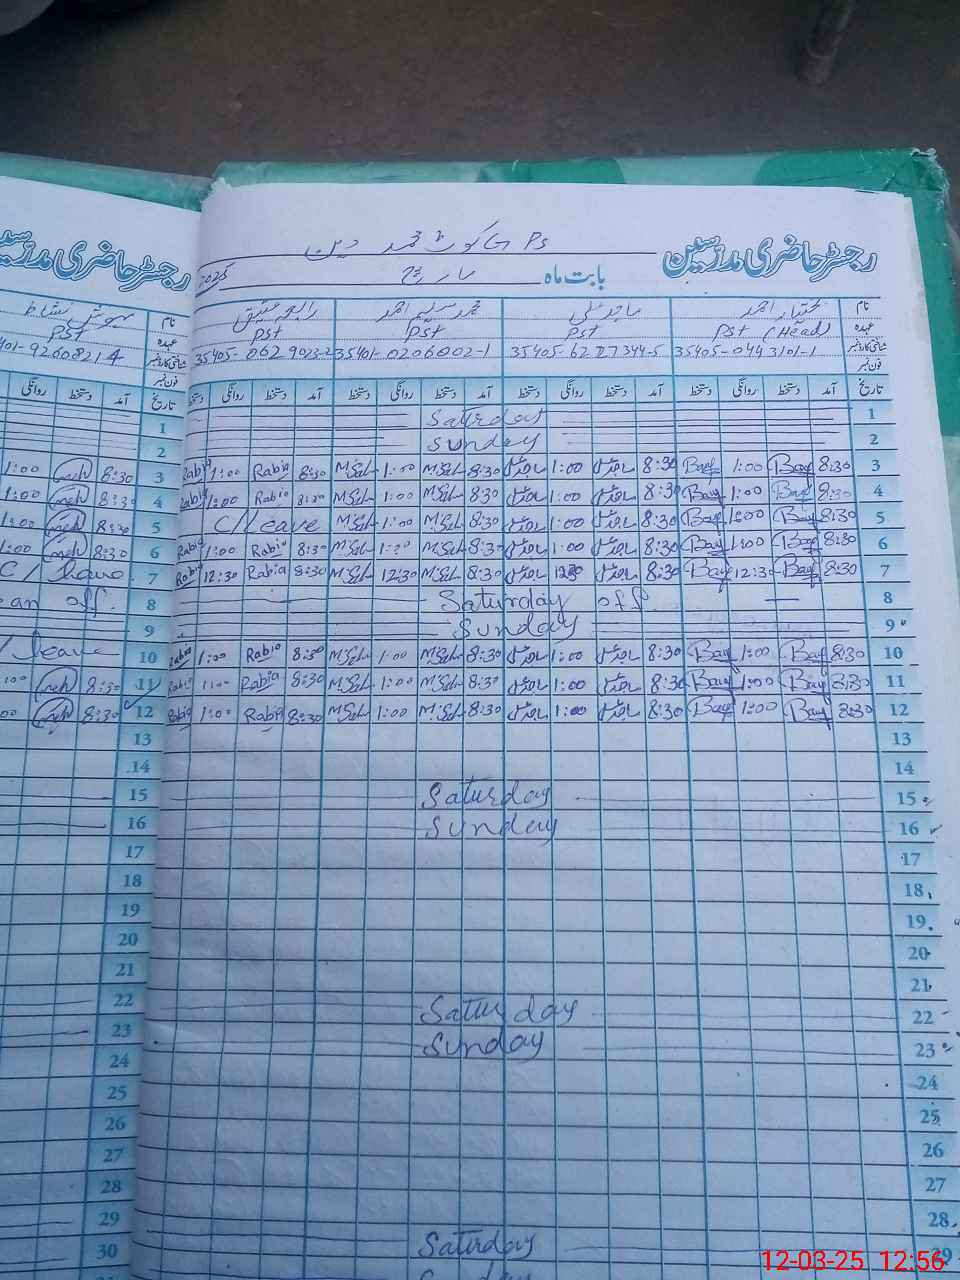 رجسٹر حاضری مدرسین
Ps
بابت ماہ مارچ 2025
نام مختار احمد ماجد علی محمد سلیم احمد
عہدہ Pst (Head) Pst Pst Pst
شناختی کارڈ نمبر 35405-0443101-1 35401-0206002-1
فون نمبر
تاریخ آمد دستخط روانگی دستخط آمد دستخط روانگی دستخط آمد دستخط روانگی دستخط آمد دستخط روانگی دستخط
1 Saturday
2 Sunday
3 8:30 1:00 8:30 1:00 8:30 M.Sal 1:00 M.Sal 8:30 Rabia 1:00 Rabia
4 8:30 1:00 8:30 1:00 8:30 M.Sal 1:00 M.Sal 8:30 Rabia 1:00 Rabia
5 8:30 1:00 8:30 1:00 8:30 M.Sal 1:00 M.Sal C/Leave
6 8:30 1:00 8:30 1:00 8:30 M.Sal 1:00 M.Sal 8:30 Rabia 1:00 Rabia
7 8:30 12:30 8:30 12:30 8:30 M.Sal 12:30 M.Sal 8:30 Rabia 12:30 Rabia
8 Saturday off
9 Sunday
10 8:30 1:00 8:30 1:00 8:30 M.Sal 1:00 M.Sal 8:30 Rabia 1:00 Rabia
11 8:30 1:00 8:30 1:00 8:30 M.Sal 1:00 M.Sal 8:30 Rabia 1:00 Rabia
12 8:30 1:00 8:30 1:00 8:30 M.Sal 1:00 M.Sal 8:30 Rabia 1:00 Rabia
13
14
15 Saturday
16 Sunday
17
18
19
20
21
22 Saturday
23 Sunday
24
25
26
27
28
29 Saturday
رجسٹر حاضری مدرسین
نام
عہدہ Pst
شناختی کارڈ نمبر 401-9260821-4
فون نمبر
تاریخ آمد دستخط روانگی
1
2
3 8:30 meh 1:00
4 8:30 meh 1:00
5 8:30 meh 1:00
6 8:30 meh 1:00
7 C/leave
8 off
9
10 leave
11 8:30 meh 00
12 8:30 meh 00
13
14
15
16
17
18
19
20
21
22
23
24
25
26
27
28
29
30
12-03-25 12:56